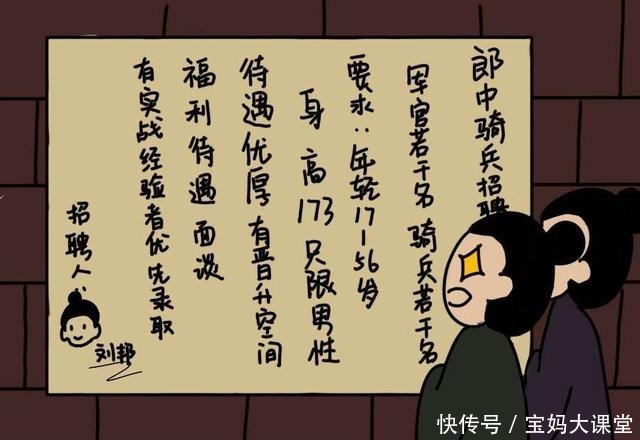 郎中骑兵招聘
军官若干名 骑兵若干名
要求：年轻17-56岁
身高173只限男性
待遇优厚有晋升空间
福利待遇面谈
有实战经验者优先录取
招聘人：
刘邦
快传号／宝妈大课堂